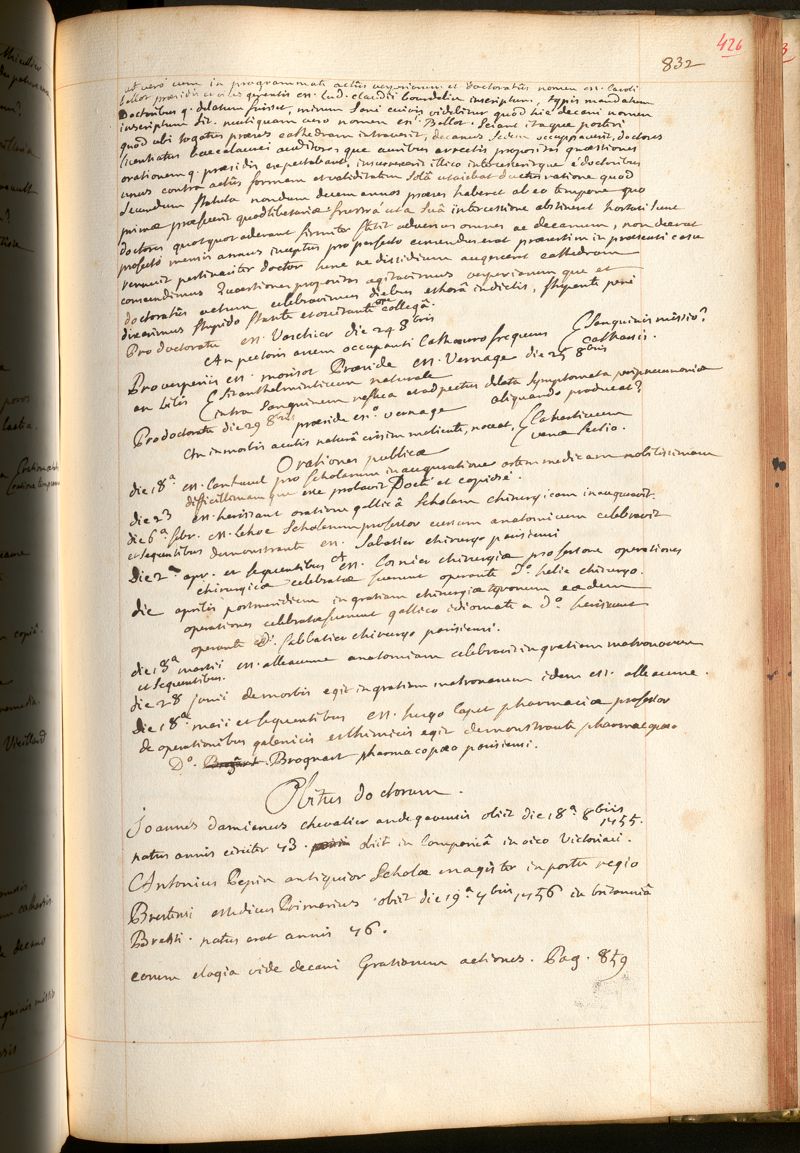 426
832
ast vero cum in programmate actûs vesperiarum et doctoratûs nomen m. Caroli
Bellot præsidis civilis gerentis m. Lud. claudii bourdelin inscriptum, typis mandatum
Doctoribus q. delatum fuisset, mirum sane cuivis videbitur quòd hic decani nomen
inscriptum sit. nuttiquam vero nomen m. Bellot. Sciant itaque posteri
quòd ubi togatus præses cathedram intraverit, decanus Sedem occupaverit, doctores
licentiatus baccalaurei auditores que auribus arrectis propositas quæstiones
orationem q. præsidis expectabant, insurrexerit illico intercesseritque è doctoribus
unus contra actûs formam et validitatem solâ utaiebat ductus ratione quod
secundum statuta nondum decem annos præses haberet ab eo tempore quo
primæ præfuerit quodlibetariæ frustrà ut a suâ intercessione abstineret hortati sunt
doctores quotquot aderant firmiter stetit adversus omnes ac decanum, non deerat
profectò mensis annus inceptus pro perfecto censendus erat præsertim in præsenti casu
renuit pertinaciter doctor hinc ne dissidium augesceret cathedram
conscendimus Quæstiones propositas agitavimus vesperiarum que et
doctoratûs actum celebravimus diebus et horâ indictis, stupente penè
dixerimus stupido stante et oscitante collegâ.
Pro doctoratu m. Vaschier die 24 8bris
An pectoris anem occupanti Catharro frequens { Sanguinis missio?
Catharsis.
Pro vesperiis m. morisot Præside m. Vernage die 25 8bris
an bilis { Sit anthelminticum naturale
intra sanguinem reflua et ad pectus delata symptomata peripneumonica
aliquando producat?
Pro doctoratu die 29 8bris præside m.° vernage
An in morbis acutis naturâ crisim moliente, noceat, { Catharticum
venæ Sectio.
Orationes publicæ
die 18a m. Cantwel pro Scholarum inauguratione artem medicam nobilissimam
difficillimamque esse probavit Doctè et copiosè.
die 23 m. herissant oratione gallicâ Scholam chirurgicam inauguravit.
die 6a febr. m. lehoc Scholarum professor cursum anatomicum celebravit
et sequentibus demonstrante m. Sabatier chirurgo parisiensi
die 2a apr. et sequentibus m. Cosnier chirurgiæ professore operationes
chirurgicæ celebratæ fuerunt operante D.° helie chirurgo.
die aprilis postmeridiem in gratiam chirurgiæ tyronum eædem
operationes celebratæ fuerunt gallico idiomate a D.° herissant
operante D. Sabbatier chirurgo parisiensi.
die 18a martii m. alleaume anatomiam celebravit in gratiam matronarum
et sequentibus.
die 28 junii de morbis egit in gratiam matronarum idem m. alleaume.
die 18a maii et sequentibus m. hugo Capet pharmaciæ professor
de operationibus galenicis et chimicis egit demonstrante pharmacopæo
D°. Brognart pharmacopæo parisiensi.
Obitus doctorum.
Joannes Damianus chevalier andegavensis obiit die 18a 8bris 1755.
natus annis circiter 43. obiit in Campaniâ in vico Victoriaci.
Antonius Pepin antiquior Scholæ magister in portu regio
Brestensi medicus Primarius obiit die 19a 7bris 1756 in britanniâ
Bresti. natus erat annis 46.
eorum elogia vide decani Gratiarum actiones. Pag. 859